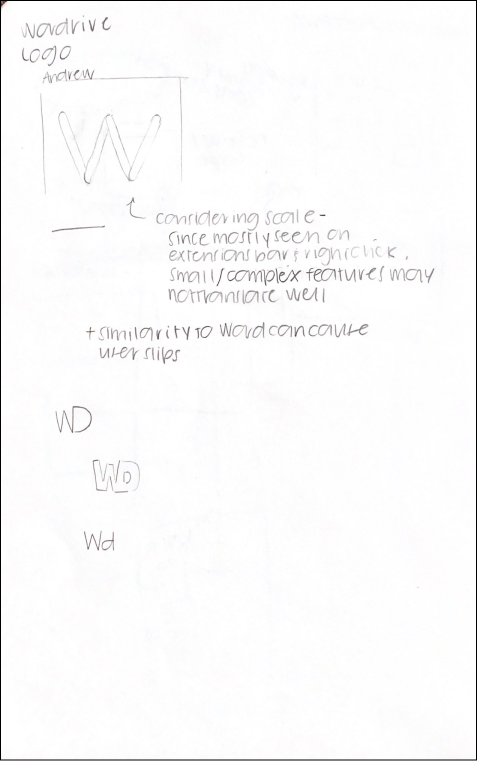 Wordrive
Logo
Andrew
W
considering scale -
since mostly seen on
extensions bar & right click,
small/complex features may
not translate well
+ similarity to Word can cause
user slips
WD
WD
Wd